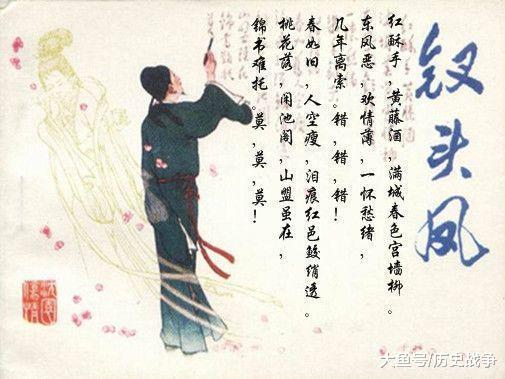 钗头凤
红酥手,黄藤酒,满城春色宫墙柳。
东风恶,欢情薄,一怀愁绪,
几年离索。错,错,错!
春如旧,人空瘦,泪痕红邑鲛绡透。
桃花落,闲池阁,山盟虽在,
锦书难托。莫,莫,莫!
大鱼号/历史战争